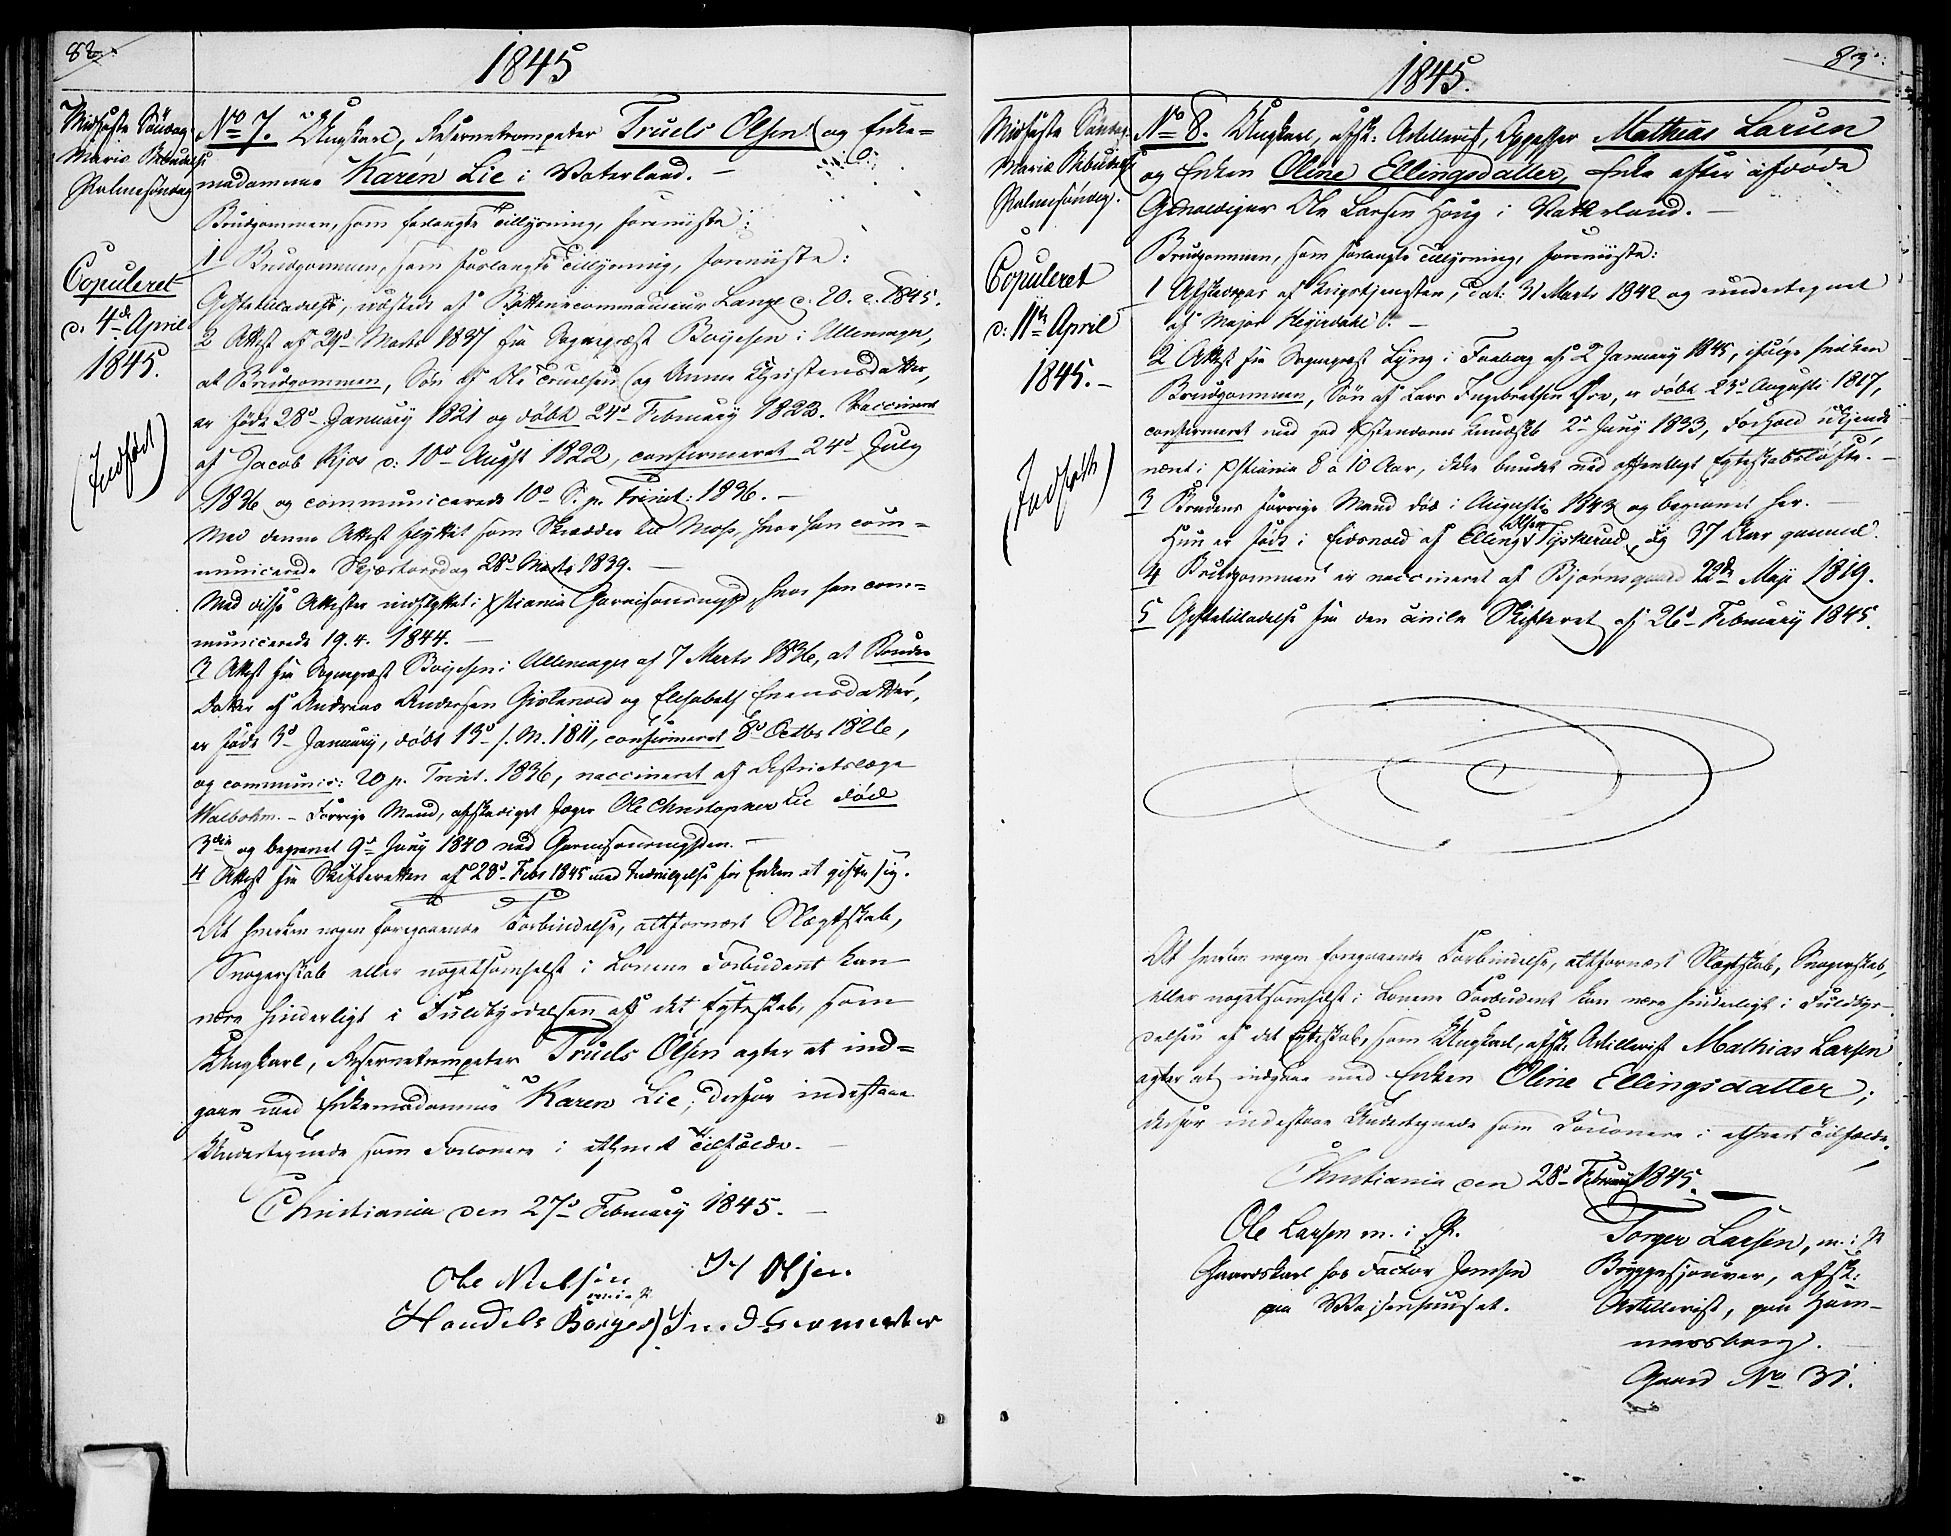 82.
1845
Midfaste Söndag
Mariæ Bebudelse
Palmesöndag
Copuleret
d. 4de April
1845.
(Indført)
No 7. Ungkarl, Reservetrompeter Truels Olsen og Enke=
madamme Karen Lie i Vaterland. –
Brudgommen, som forlangte Tillysning, foreviste:
1 Brudgommen, som forlangte Tillysning, foreviste:
Giftetilladelse, udstedt af Lange d. 20. 2. 1845.
2 Attest af 29d Marts 1837 fra Sognepræst Boyesen i Ullensager,
at Brudgommen, Søn af Ole Truelsen og Anne Christensdatter,
er født 28d January 1821 og døbt 24d February 1822. Vaccineret
af Jacob Kjos d: 10d Augst 1822, confirmeret 24d July
1836 og communicerede 10d S. p. Trinit: 1836. –
Med denne Attest flyttet som Skrædder til Moss, hvor han com=
municerede Skjærtorsdag 28d Marts 1839. –
Med disse Attester indflyttet i Xstiania Garnisonsmgd, hvor han com=
municerede 19. 4. 1844. –
3 Attest fra Sognepræst Boyesen i Ullensager af 7 Marts 1836, at Bruden
Datter af Andreas Andersen Gislevold og Elisabeth Evensdatter,
er født 3d January, døbt 13d s. M. 1811, confirmeret 8d Octbr 1826,
og communic: 20 p. Trinit. 1836, vaccineret af Districtslæge
Walbohm. – Forrige Mand, afskediget Jæger Ole Christopher Lie død
3die og begravet 9d Juny 1840 ved Garnisonsmgheden. –
4 Attest fra Skifteretten af 28d Febr 1845 med Indvilgelse for Enken at gifte sig.
At hverken nogen foregaaende Forbindelse, altfornært Slægtskab,
Svogerskab eller nogetsomhelst i Lovene Forbudent kan
være hinderligt i Fuldbyrdelsen af det Egteskab, som
Ungkarl, Reservetrompeter Truels Olsen agter at ind=
gaae med Enkemadamme Karen Lie; derfor indestaae
Undertegnede som Forlovere i ethvert Tilfælde. –
Christiania den 27d February 1845. –
Ole Nielsen
Olsen
Handels Borger
83.
1845.
Midfaste Søndag
Mariæ Bebudelse
Palmesøndag.
Copuleret
d: 11te April
1845. –
(Indført)
No 8. Ungkarl, afsk: Artillerist, Mathias Larsen
og Enken Oline Ellingsdatter, Enke efter afdøde
Gevaldiger Ole Larsen Houg i Vatterland. –
Brudgommen, som forlangte Tillysning, foreviste:
1 Afskedspas af Krigstjenesten, dat: 31 Marts 1842 og undertegnet
af Major Hegerdahl. –
2 Attest fra Sognepræst Lyng i Faaberg af 2 January 1845, ifølge hvilken
Brudgommen, Søn af Lars Ingebretsen Øre, er døbt 23d Augusti 1817,
confirmeret med god Xstendoms Kundskab 2d Juny 1833, Forhold ukjendt
været i Xstiania 8 à 10 Aar, ikke bundet ved offentligt Egteskabsløfte. –
3 Brudens forrige Mand død i Augusti 1843 og begravet her. –
Olsen
Hun er født i Eidsvold af Elling Tyskerud, og 37 Aar gammel.
4 Brudgommen er vaccineret af Bjørnsgaard 22de Maj 1819.
5 Giftetilladelse fra den civile Skifteret af 26d February 1845.
At hverken nogen foregaaende Forbindelse, altfornært Slægtskab, Svogerskab,
eller nogetsomhelst i Lovene Forbudent kan være hinderligt i Fuldbyr-
delsen af det Egteskab, som Ungkarl, afsk: Artillerist Mathias Larsen
agter at indgaae med Enken Oline Ellingsdatter;
derfor indestaae Undertegnede som Forlovere i ethvert Tilfælde.
Christiania den 28d February 1845.
Ole Larsen m. i P.
Gaardskarl hos Factor Jensen
paa Wejsenhuset.
Torger Larsen, m. i P
Bryggesjouer, afsk:
Artillerist, paa Ham-
mersborg.
Gaard No 31.